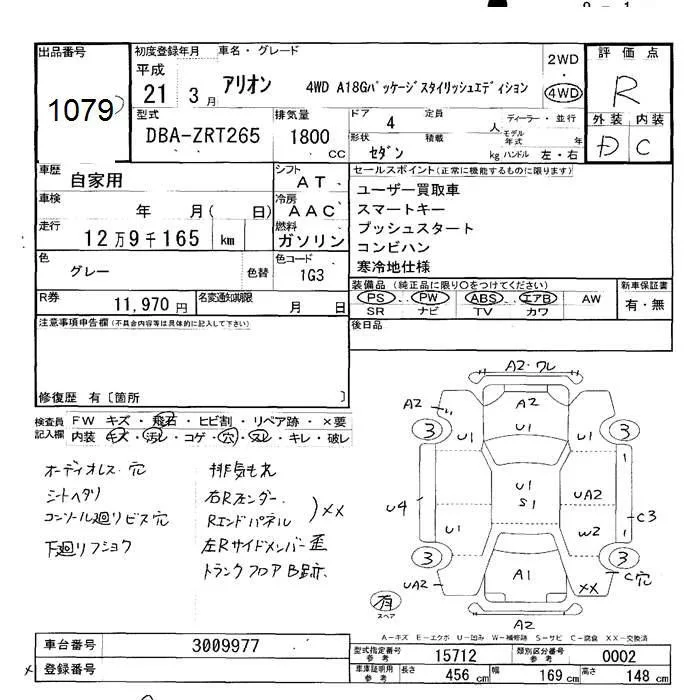 出品番号
1079
初度登録年月
平成
21 3月
車名・グレード
アリオン 4WD A18Gパッケージスタイリッシュエディション
2WD
・
4WD
評価点
R
外装 内装
D C
型式
DBA-ZRT265
排気量
1800
CC
ドア 4 定員 人
形状 セダン 積載 kg
ディーラー・並行
モデル年式 年
ハンドル 左・右
車歴
自家用
シフト
AT
車検
年 月( 日)
冷房
AAC
走行
12万9千165 km
燃料
ガソリン
色
グレー
色替
色コード
1G3
R券
11,970 円
名変通知期限
月 日
セールスポイント(正常に機能するものに限ります)
ユーザー買取車
スマートキー
プッシュスタート
コンビハン
寒冷地仕様
装備品(純正品に限り〇をつけてください)
PS PW ABS エアB AW
SR ナビ TV カワ
新車保証書
有・無
注意事項申告欄(不具合内容等は具体的に記入して下さい)
後日品
修復歴 有〔箇所 〕
検査員記入欄
FW キズ・飛石・ヒビ割・リペア跡・×要
内装 キズ・汚レ・コゲ・穴・スレ・キレ・破レ
オーディオレス・穴
シートヘタリ
コンソール廻リビス穴
下廻リフショク
排気もれ
右Rフェンダー・
Rエンドパネル
)××
左Rサイドメンバー歪
トランクフロアB跡
A2・ワレ
A2
A2
3
3
U1
U1
U1
U1
S1
U4
UA2
C3
U1
W2
3
3
UA2
A1
××
C穴
A2
有
スペア
A―キズ E―エクボ U―凹み W―補修跡 S―サビ C―腐食 XX―交換済
車台番号
3009977
登録番号
型式指定番号
参考
15712
類別区分番号
参考
0002
車庫証明用
参考
長さ 456 cm 幅 169 cm 高さ 148 cm